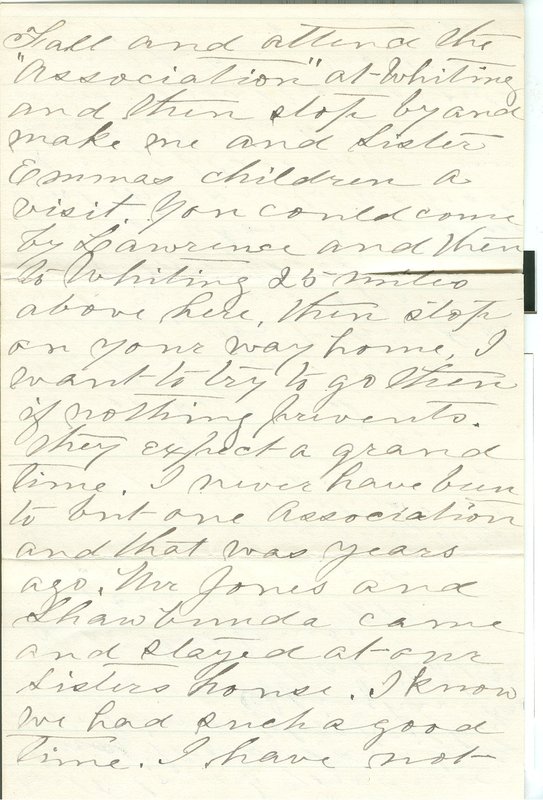 Fall and attend the
"Association" at Whiting
and then stop by and
make me and Sister
Emmas children a
visit. You could come
by Lawrence and then
to Whiting 25 miles
above here, then stop
on your way home, I
want to try to go then
if nothing prevents.
They expect a grand
time. I never have bun
to but one Association
and that was years
ago. Mr Jones and
came
and stayed at our
Sisters house. I know
we had such a good
time. I have not